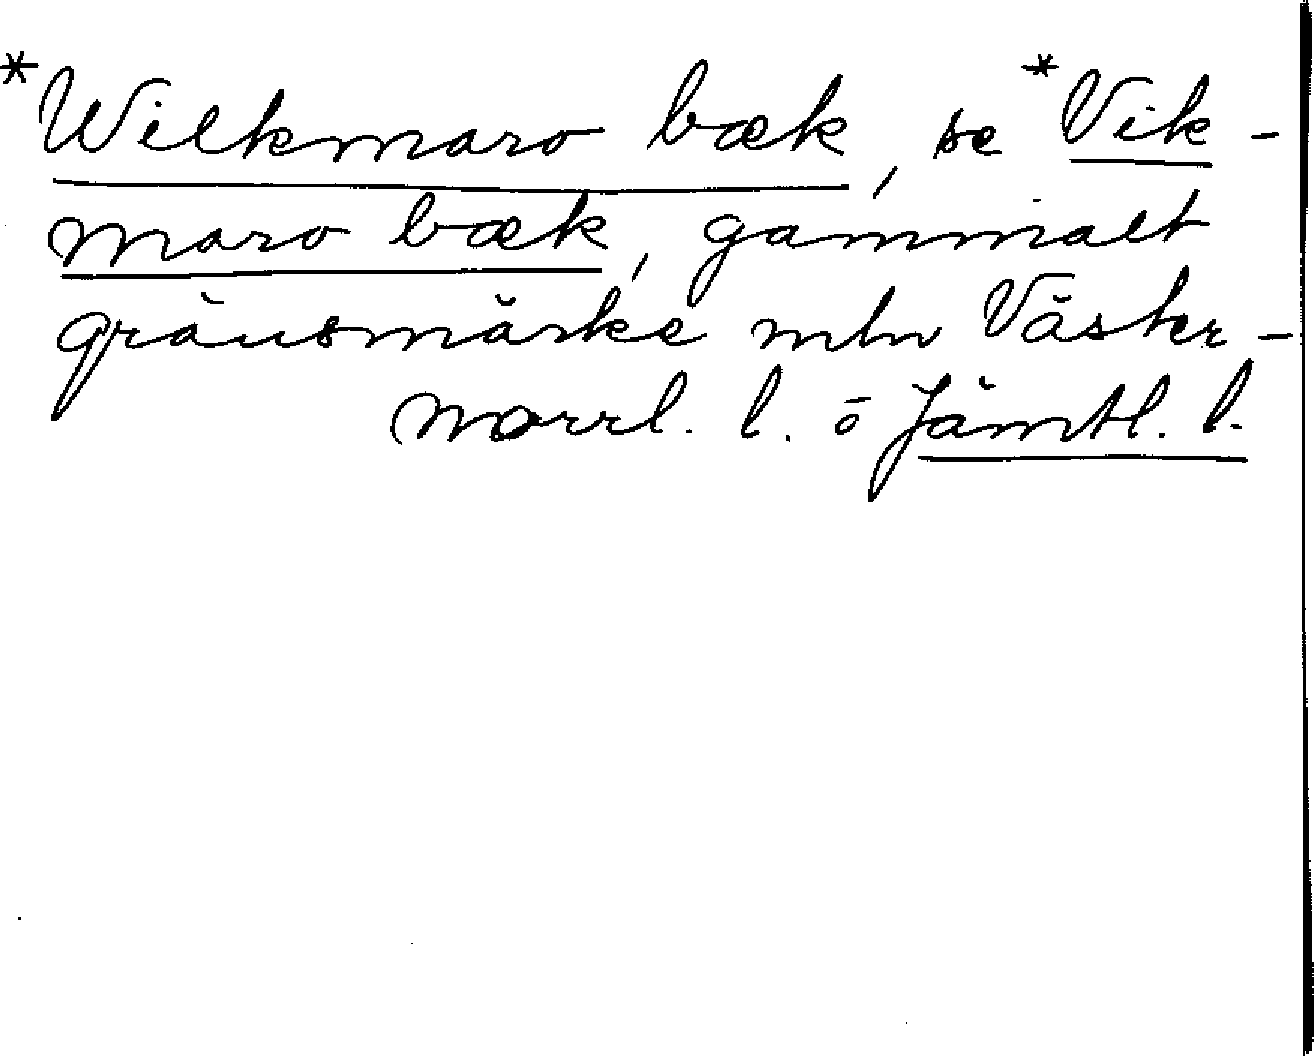 *Wilkmaro bæk, se *Vik-
maro bæk, gammalt
gränsmärke mln Väster-
norrl. l. o Jämtl. l.